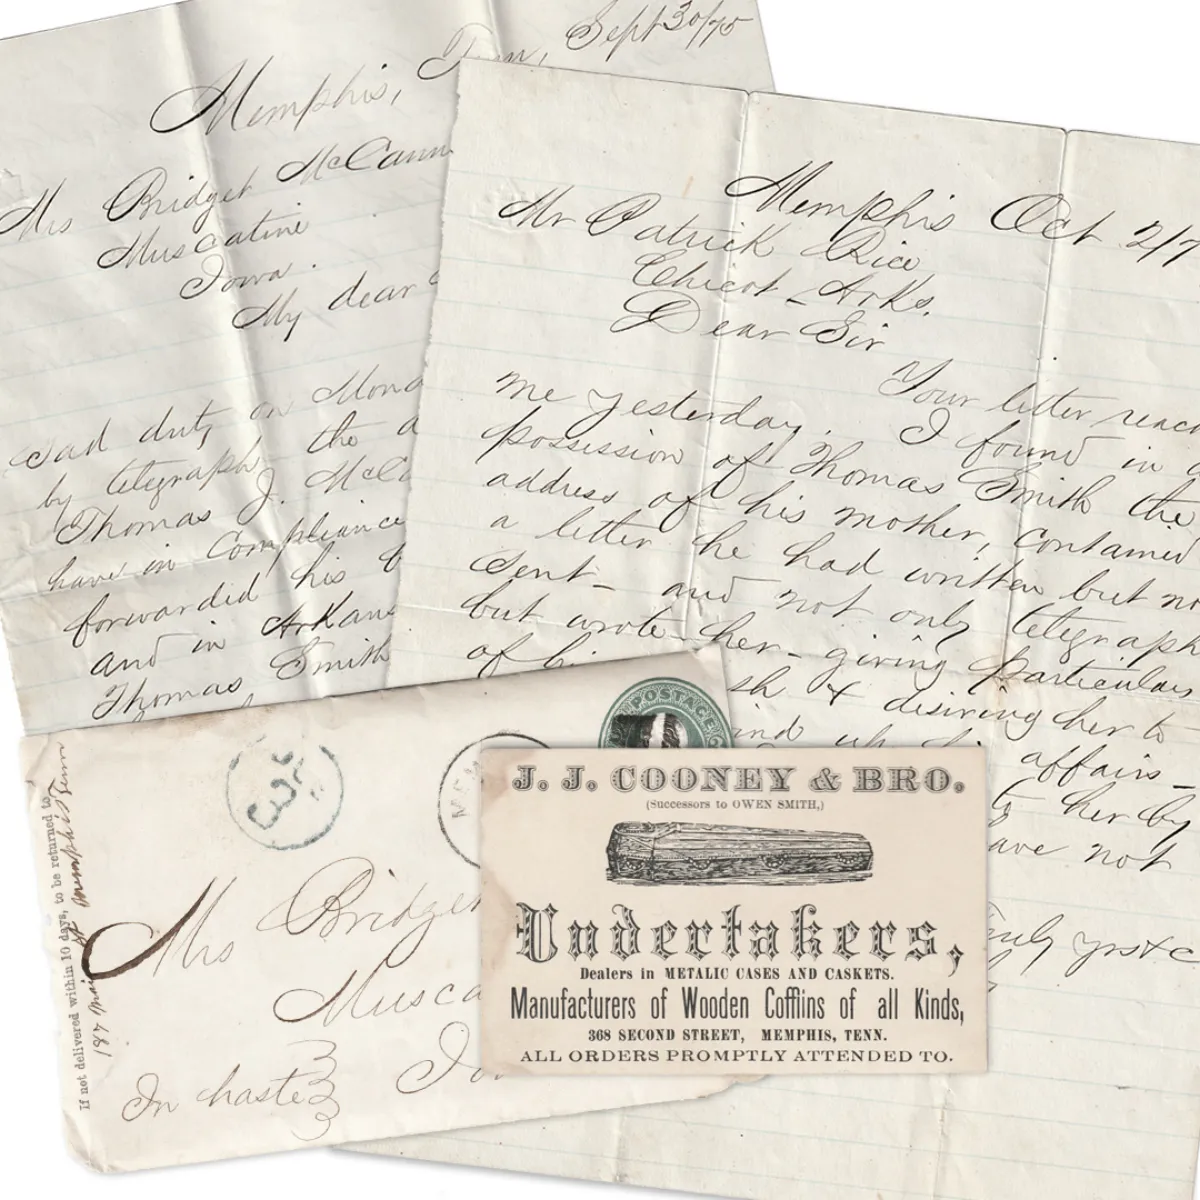 Memphis, Tenn, Sept 30/75
Mrs Bridget McCann
Muscatine
Iowa.
My dear
Sad duty on Mond
by telegraph the
Thomas J. McC
have in compliance
forwarded his
and in Arkans
Thomas Smith
Memphis Oct 2/7
Mr Patrick Rice
Chicot - Arks.
Dear Sir
Your letter reach
me yesterday. I found in
possession of Thomas Smith the
address of his mother, contained
a letter he had written but no
sent - and not only telegraph
but wrote her - giving particulars
of & desiring her to
up his affairs -
to her by
have not
Truly yrs &c
POSTAGE
If not delivered within 10 days, to be returned to
187 Main St Memphis Tenn
Mrs Bridget
Musca
Io
In haste
J. J. COONEY & BRO.
(Successors to OWEN SMITH,)
Undertakers,
Dealers in METALIC CASES AND CASKETS.
Manufacturers of Wooden Coffiins of all Kinds,
368 SECOND STREET, MEMPHIS, TENN.
ALL ORDERS PROMPTLY ATTENDED TO.